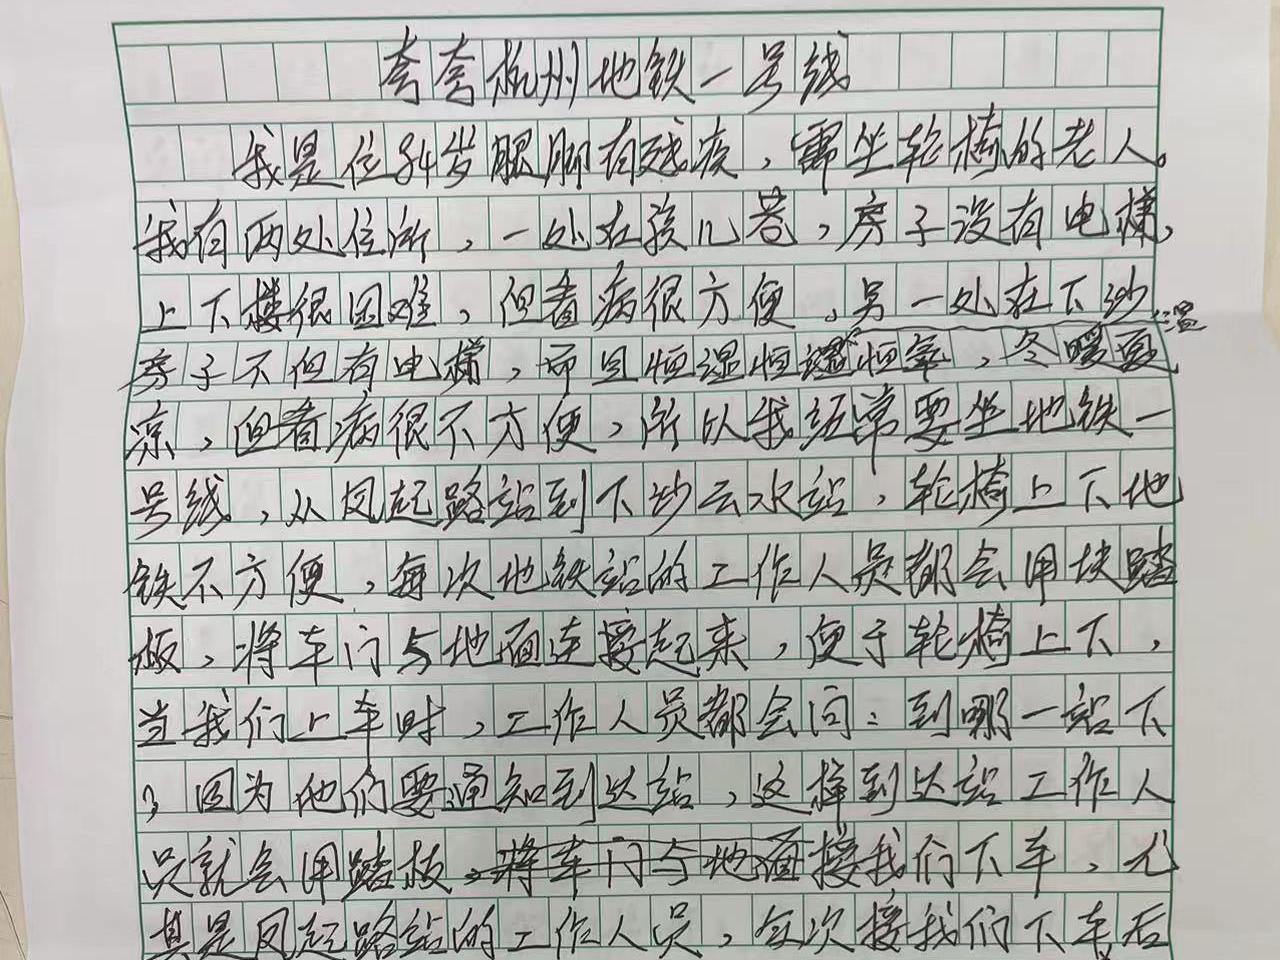 夸夸杭州地铁一号线
我是位84岁腿脚有残疾，需坐轮椅的老人。
我有两处住所，一处在孩儿巷，房子没有电梯，
上下楼很困难，但看病很方便，另一处在下沙
房子不但有电梯，而且恒温恒湿恒氧，冬暖夏
凉，但看病很不方便，所以我经常要坐地铁一
号线，从凤起路站到下沙云水站，轮椅上下地
铁不方便，每次地铁站的工作人员都会用块踏
板，将车门与地面连接起来，便于轮椅上下，
当我们上车时，工作人员都会问：到哪一站下
，因为他们要通知到达站，这样到达站工作人
员就会用踏板接我们下车，尤
其是凤起路站的工作人员，每次接我们下车后